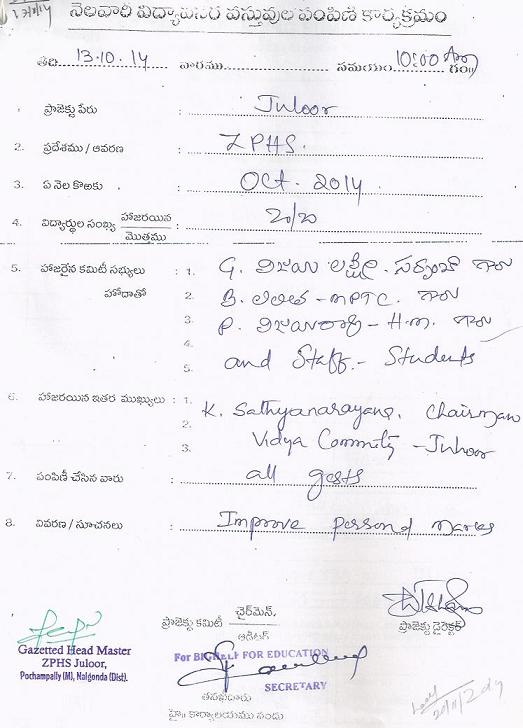 నెలవారి విద్యోపకరణ వస్తువుల పంపిణి కార్యక్రమం
తేది 13.10.14 వారము సమయం 10:00 Am గం||
ప్రాజెక్టు పేరు : Juloor
2. ప్రదేశము / ఆవరణ : ZPHS.
3. ఏ నెల కొఱకు : Oct. 2014
4. విద్యార్థుల సంఖ్య హాజరయిన / మొత్తము : 20/20
5. హాజరైన కమిటీ సభ్యులు : 1. G. విజయ లక్ష్మి. సర్పంచ్ గారు
హోదాతో 2. B. లలిత - MPTC. గారు
3. P. - H.M. గారు
4.
5. and Staff. - Students
6. హాజరయిన ఇతర ముఖ్యులు : 1. K. Sathyanarayana, Chairman
2.
3. Vidya Commity - Juloor
7. పంపిణీ చేసిన వారు : all gests
8. వివరణ / సూచనలు : Improve personal marks
ప్రాజెక్టు కమిటీ ఛైర్మెన్
ఆడిటర్
ప్రాజెక్టు డైరెక్టర్
Gazetted Head Master
ZPHS Juloor,
Pochampally (M), Nalgonda (Dist).
For BIGHELP FOR EDUCATION
SECRETARY